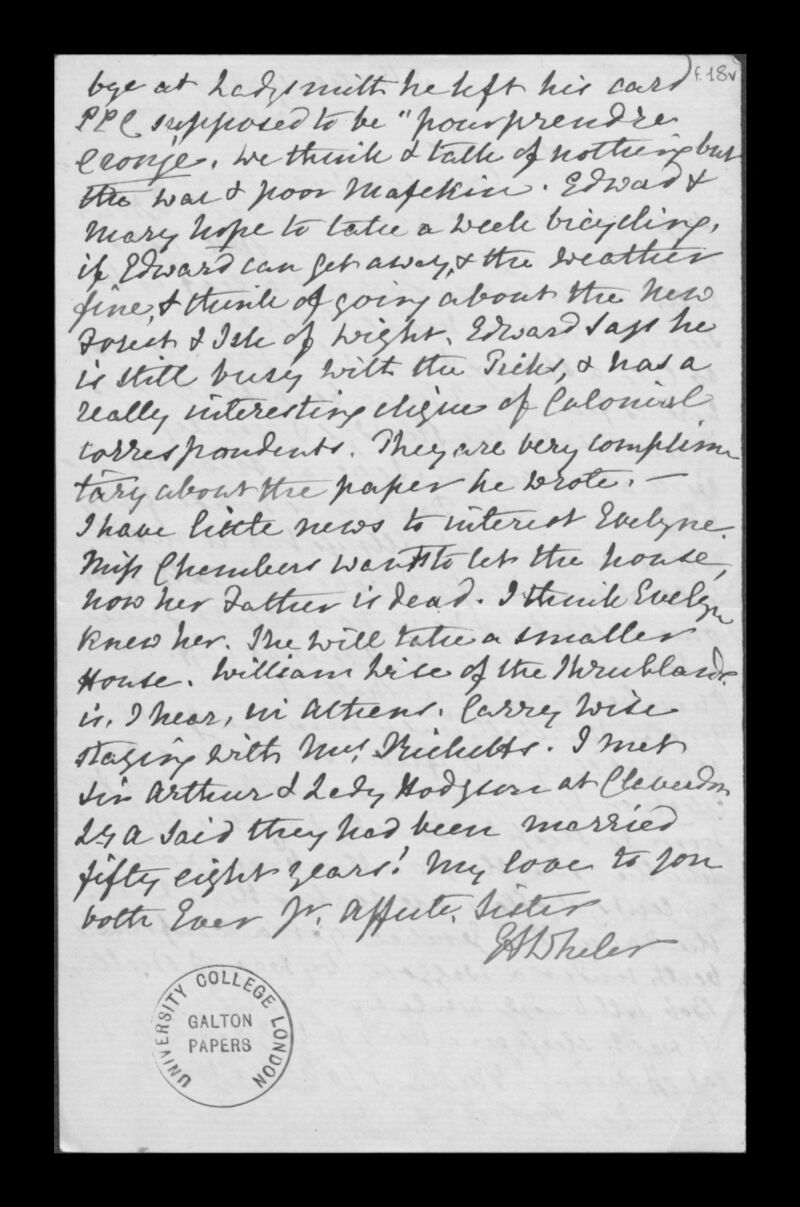 f. 18v
bye at Ladysmith he left his card
PPC supposed to be "pour prendre
Cronje. We think & talk of nothing but
the war & poor Mafekin. Edward &
Mary hope to take a week bicycling,
if Edward can get away, & the weather
fine, & think of going about the New
Forest & Isle of Wight. Edward says he
is still busy with the Picks, & has a
really interesting clique of Colonial
correspondents. They are very complim
tary about the paper he wrote. —
I have little news to interest Evelyne.
Miss Chambers wants to let the house,
now her Father is dead. I think Evelyn
knew her. She will take a smaller
House. William Wise of the Shrublands
is, I hear, in Athens. Carrey Wise
staying with Mrs. Ricketts. I met
Sir Arthur & Lady Hodgson at Claverdon
Ly A said they had been married
fifty eight years! My love to you
both Ever Yr. Affecte. Sister
E A Wheler
UNIVERSITY COLLEGE LONDON
GALTON
PAPERS